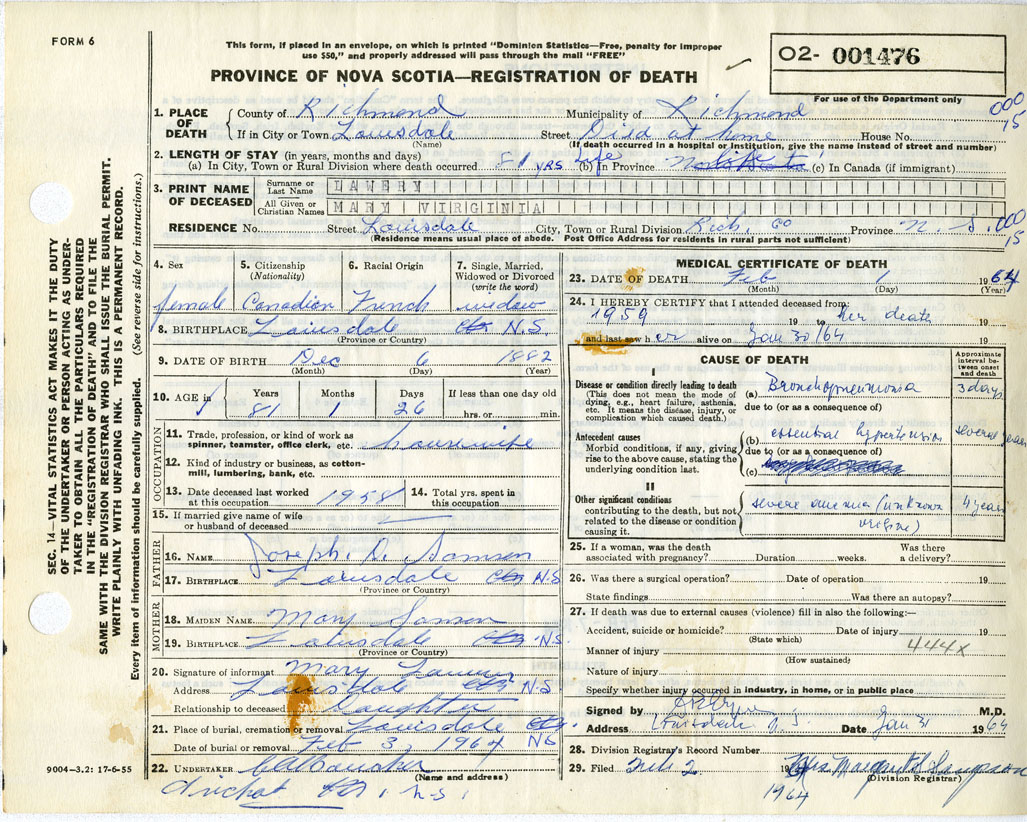 FORM 6
This form, if placed in an envelope, on which is printed "Dominion Statistics—Free, penalty for improper
use $50," and properly addressed will pass through the mail "FREE"
PROVINCE OF NOVA SCOTIA—REGISTRATION OF DEATH
02- 001476
For use of the Department only
000
15
1. PLACE OF DEATH
County of Richmond Municipality of Richmond
If in City or Town Louisdale Street Died at home House No.
(Name) (If death occurred in a hospital or institution, give the name instead of street and number)
2. LENGTH OF STAY (in years, months and days)
(a) In City, Town or Rural Division where death occurred 81 yrs (b) In Province Life (c) In Canada (if immigrant)
3. PRINT NAME OF DECEASED
Surname or Last Name LAWERY
All Given or Christian Names MARY VIRGINIA
RESIDENCE No. Street Louisdale City, Town or Rural Division Rich. Co Province N. S.
000
15
(Residence means usual place of abode. Post Office Address for residents in rural parts not sufficient)
4. Sex
female
5. Citizenship (Nationality)
Canadian
6. Racial Origin
French
7. Single, Married, Widowed or Divorced (write the word)
widow
8. BIRTHPLACE Louisdale N.S.
(Province or Country)
9. DATE OF BIRTH Dec 6 1882
(Month) (Day) (Year)
10. AGE in Years Months Days If less than one day old
81 1 26 hrs. or min.
OCCUPATION
11. Trade, profession, or kind of work as spinner, teamster, office clerk, etc. housewife
12. Kind of industry or business, as cotton-mill, lumbering, bank, etc.
13. Date deceased last worked at this occupation 1958
14. Total yrs. spent in this occupation
15. If married give name of wife or husband of deceased
FATHER
16. NAME Joseph D. Samson
17. BIRTHPLACE Louisdale N.S
(Province or Country)
MOTHER
18. MAIDEN NAME Mary Samson
19. BIRTHPLACE Louisdale N.S.
(Province or Country)
20. Signature of informant Mary
Address Louisdale N.S.
Relationship to deceased Daughter
21. Place of burial, cremation or removal Louisdale
Date of burial or removal Feb 3, 1964 NS
22. UNDERTAKER
(Name and address)
Arichat N.S.
9004—3.2: 17-6-55
SEC. 14—VITAL STATISTICS ACT MAKES IT THE DUTY
OF THE UNDERTAKER OR PERSON ACTING AS UNDER-
TAKER TO OBTAIN ALL THE PARTICULARS REQUIRED
IN THE "REGISTRATION OF DEATH" AND TO FILE THE
SAME WITH THE DIVISION REGISTRAR WHO SHALL ISSUE THE BURIAL PERMIT.
WRITE PLAINLY WITH UNFADING INK. THIS IS A PERMANENT RECORD.
Every item of information should be carefully supplied. (See reverse side for instructions.)
MEDICAL CERTIFICATE OF DEATH
23. DATE OF DEATH Feb 1 1964
(Month) (Day) (Year)
24. I HEREBY CERTIFY that I attended deceased from:
1959 19 to her death 19
and last saw her alive on Jan 30/64 19
CAUSE OF DEATH
Approximate interval between onset and death
I
Disease or condition directly leading to death
(This does not mean the mode of dying, e.g., heart failure, asthenia, etc. It means the disease, injury, or complication which caused death.)
(a) Bronchopneumonia 3 days
due to (or as a consequence of)
Antecedent causes
Morbid conditions, if any, giving rise to the above cause, stating the underlying condition last.
(b) essential hypertension several years
due to (or as a consequence of)
(c)
II
Other significant conditions
contributing to the death, but not related to the disease or condition causing it.
severe anemia (unknown origine) 4 years
25. If a woman, was the death associated with pregnancy? Duration weeks. Was there a delivery?
26. Was there a surgical operation? Date of operation 19
State findings Was there an autopsy?
27. If death was due to external causes (violence) fill in also the following:—
Accident, suicide or homicide? Date of injury 19
(State which)
444X
Manner of injury
(How sustained)
Nature of injury
Specify whether injury occurred in industry, in home, or in public place
Signed by M.D.
Address Louisdale N. S. Date Jan 31 1964
28. Division Registry's Record Number
29. Filed Feb 2 19 Mrs Margaret
(Division Registrar)
1964